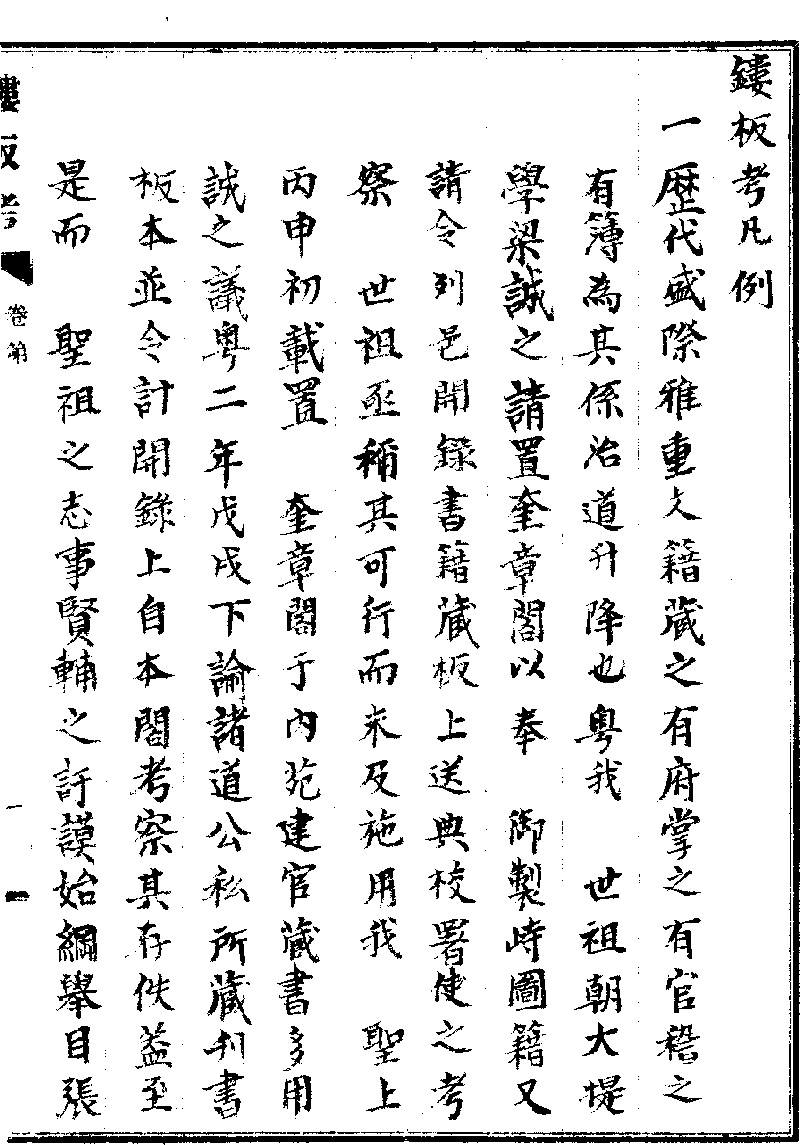 鏤板考凡例
一歷代盛際雅重文籍藏之有府掌之有官稽之
有簿為其係治道升降也粤我　世祖朝大提
學梁誠之請置奎章閣以奉　御製峙圖籍又
請令列邑開錄書籍藏板上送典校署使之考
察　世祖亟稱其可行而未及施用我　聖上
丙申初載置　奎章閣于內苑建官藏書多用
誠之議粤二年戊戌下諭諸道公私所藏刊書
板本並令計開錄上自本閣考察其存佚盖至
是而　聖祖之志事賢輔之訏謨始綱舉目張
鏤板考　卷第　一